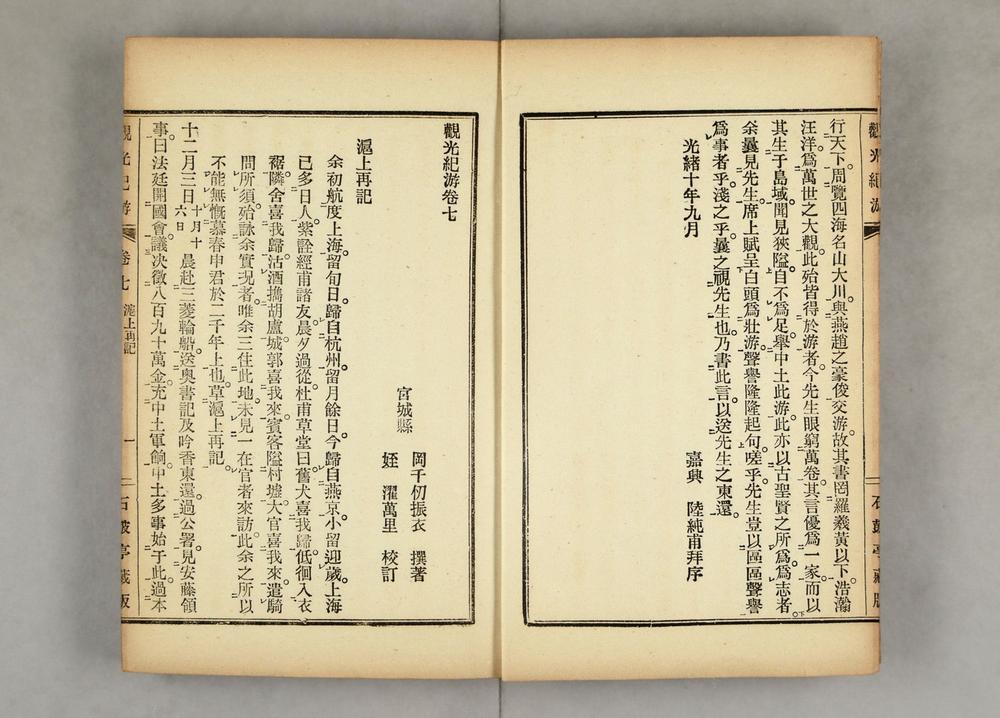 觀光紀游
行天下。周覽四海名山大川。與燕趙之豪俊交游。故其書罔羅羲黃以下。浩瀚
汪洋。爲萬世之大觀。此殆皆得於游者。今先生眼窮萬卷。其言優爲一家。而以
其生于島域。聞見狹隘。自不爲足。舉中土此游。此亦以古聖賢之所爲爲志者。
余曩見先生。席上賦呈白頭爲壯游聲譽隆隆起句。嗟乎。先生豈以區區聲譽
爲事者乎。淺之乎。曩之視先生也。乃書此言。以送先生之東還。
光緒十年九月
嘉興 陸純甫拜序
石鼓亭藏版
觀光紀游卷七
宮城縣
岡千仞振衣 撰著
姪 濯萬里 校訂
滬上再記
余初航度上海。留旬日。歸自杭州。留月餘日。今歸自燕京。小留迎歲。上海
已多日人。紫詮經甫諸友。晨夕過從。杜甫草堂曰舊犬喜我歸。低徊入衣
裾。隣舍喜我歸。沽酒擕胡盧。城郭喜我來。賓客隘村墟。大官喜我來。遣騎
問所須。殆詠余實況者。唯余三住此地。未見一在官者來訪。此余之所以
不能無慨慕春申君於二千年上也。草滬上再記。
十二月三日 十月十六日 晨赴三菱輪船。送奥書記及吟香東還。過公署。見安藤領
事。曰法廷開國會議決。徵八百九十萬金。充中土軍餉。中土多事始于此。過本
觀光紀游 卷七 滬上再記 一 石鼓亭藏版